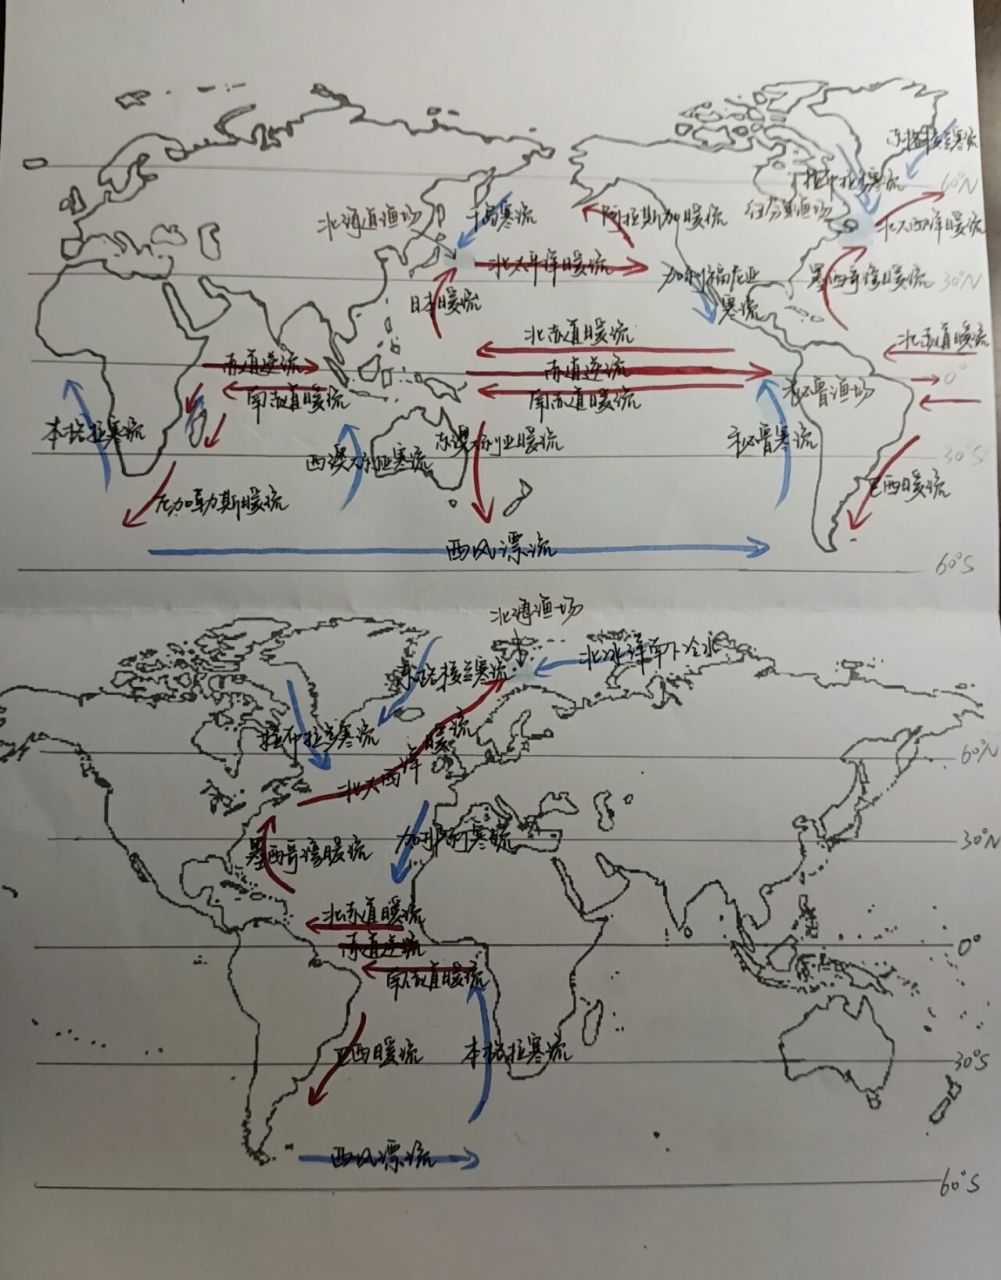 东格陵兰寒流
拉布拉多寒流
60°N
北海道渔场
千岛寒流
阿拉斯加暖流
纽芬兰渔场
北大西洋暖流
北太平洋暖流
加利福尼亚
寒流
墨西哥湾暖流
30°N
日本暖流
北赤道暖流
北赤道暖流
赤道逆流
赤道逆流
0°
南赤道暖流
南赤道暖流
秘鲁渔场
本格拉寒流
西澳大利亚寒流
东澳大利亚暖流
秘鲁寒流
30°S
厄加勒斯暖流
巴西暖流
西风漂流
60°S
北海渔场
北冰洋南下冷水
东格陵兰寒流
拉布拉多寒流
北大西洋暖流
60°N
加那利寒流
墨西哥湾暖流
30°N
北赤道暖流
赤道逆流
0°
南赤道暖流
巴西暖流
本格拉寒流
30°S
西风漂流
60°S